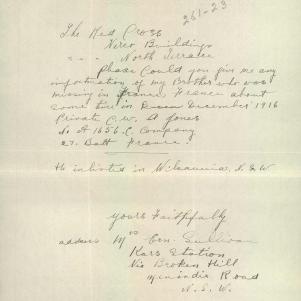 261-23
The Red Cross
Nirco Buildings
" " North Terrace
Please Could you give me any
information of my Brother who was
missing in France about
some time in December 1916
Private C. W. A Jones
No A 1656. C. Company
27. Batt France.
He inlisted in Wilcannia, N. S W
yours Faithfully
address Mrs Geo. Sullivan
Kars Station
Via Broken Hill
Menindie Road
N. S. W.